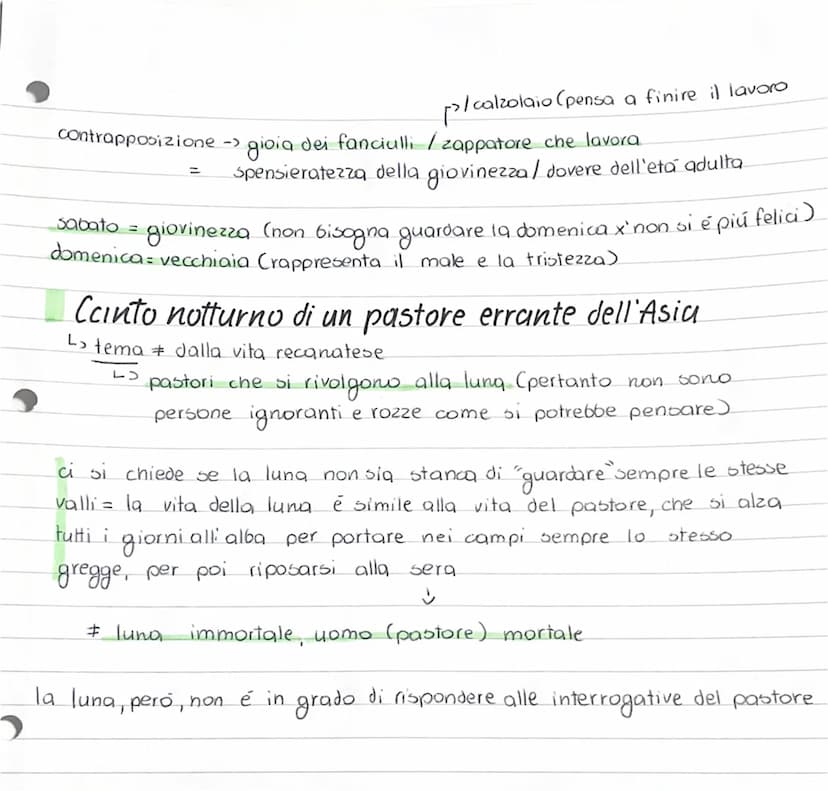 ↱/calzolaio (pensa a finire il lavoro
contrapposizione -> gioia dei fanciulli / zappatore che lavora
= spensieratezza della giovinezza / dovere dell'etá adulta
sabato = giovinezza (non bisogna guardare la domenica x' non si é piú felici)
domenica = vecchiaia (rappresenta il male e la tristezza)
Canto notturno di un pastore errante dell'Asia
↳ tema ≠ dalla vita recanatese
↳ pastori che si rivolgono alla luna (pertanto non sono
persone ignoranti e rozze come si potrebbe pensare)
ci si chiede se la luna non sia stanca di "guardare" sempre le stesse
valli = la vita della luna é simile alla vita del pastore, che si alza
tutti i giorni all'alba per portare nei campi sempre lo stesso
gregge, per poi riposarsi alla sera
↓
≠ luna immortale, uomo (pastore) mortale
la luna, peró, non é in grado di rispondere alle interrogative del pastore